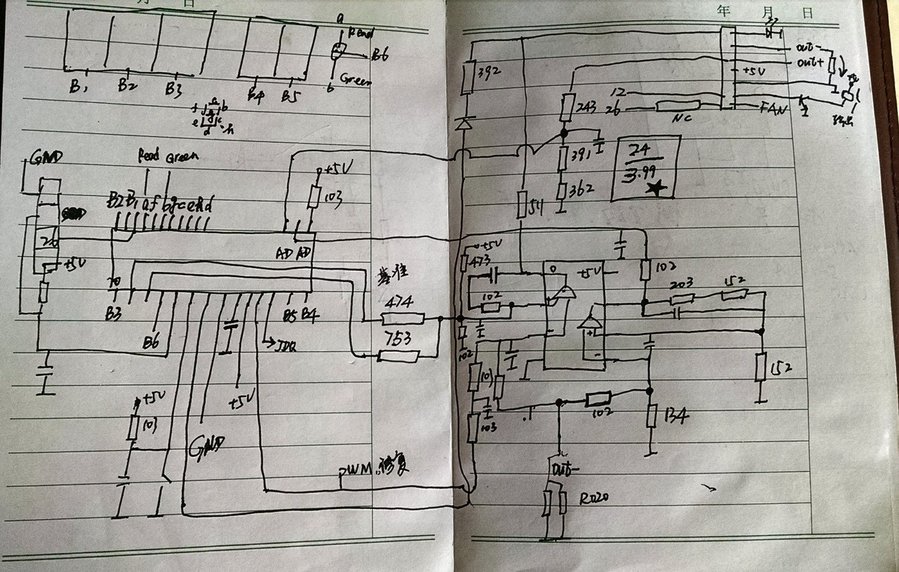 月 日
年 月 日
a
Read
B6
Green
b
B1 B2 B3 B4 B5
a
f b
g
e c
d .h
392
out-
out+
+5V
243
12
26
NC
FAN
391
362
24
3.99
GND
Read Green
+5V
103
B2 B1 a f b g c e h d
AD AD
26
+5V
54
+5V
473
+5V
102
203
152
基准
474
102
B3
B5 B4
753
B6
JDQ
102
152
+5V
103
+5V
103
102
134
GND
PWM
out-
R020